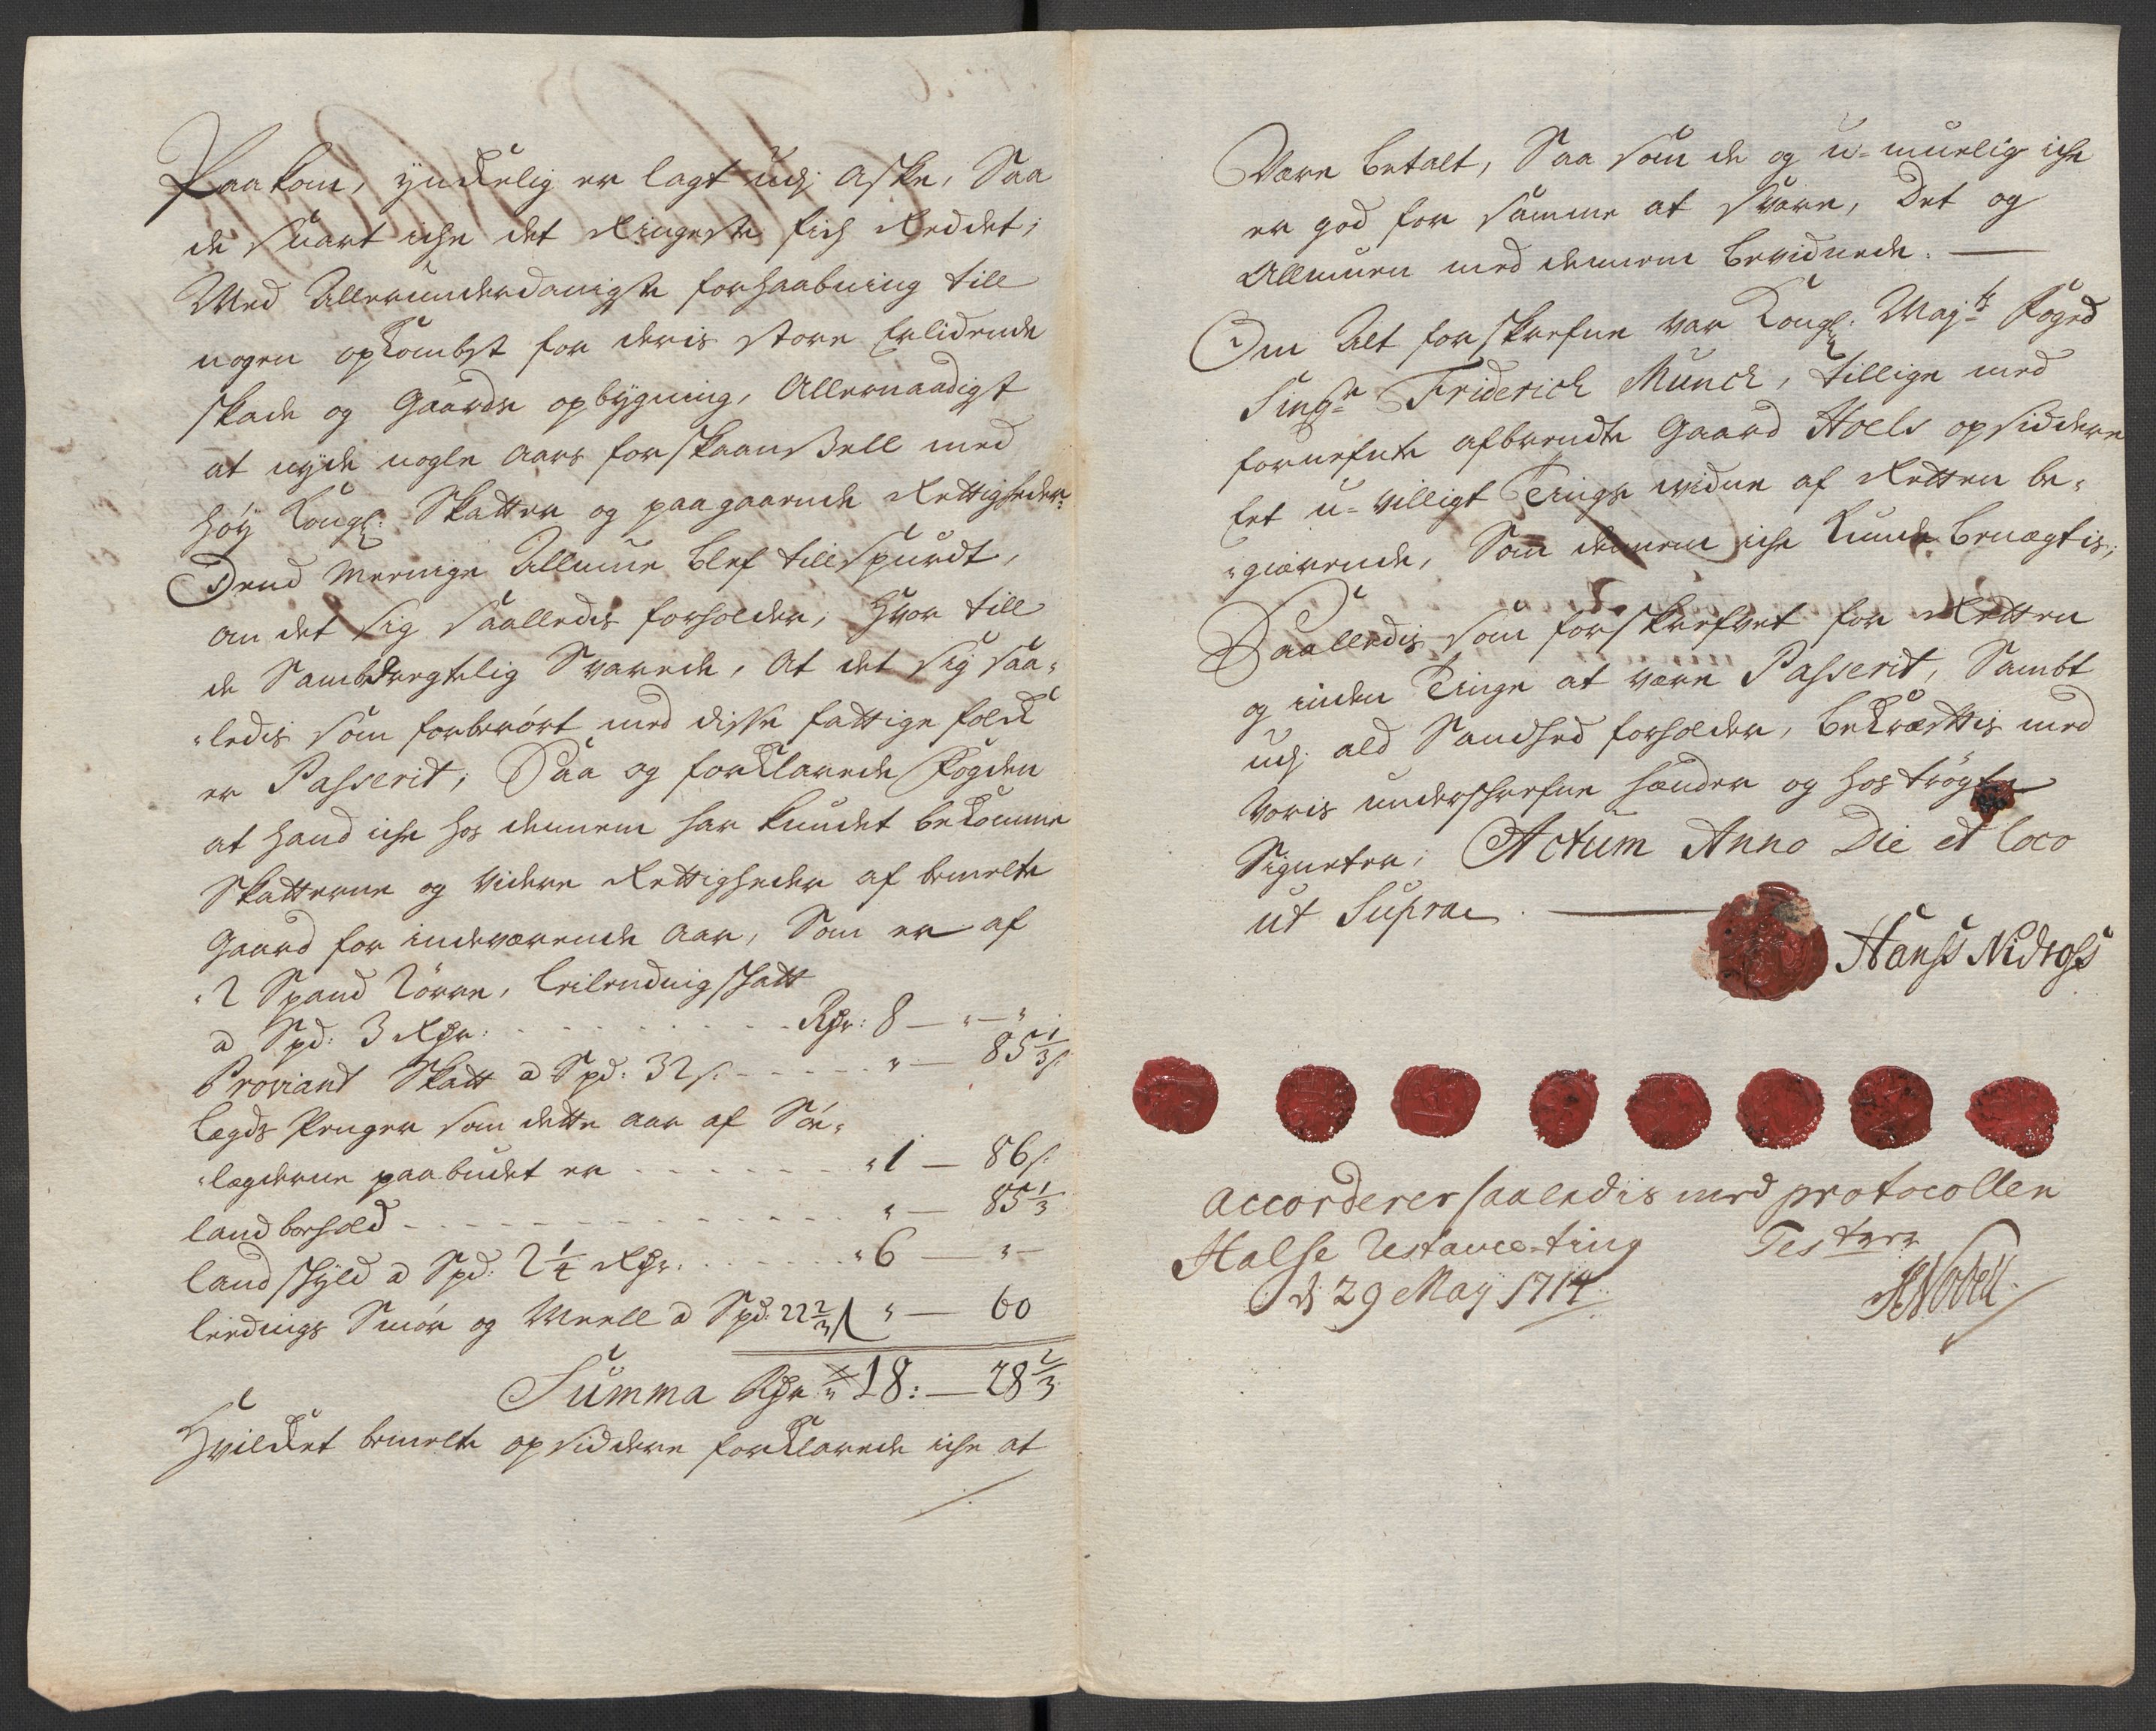 Paakom, ynckelig er lagt udj Aske, Saa
de snart iche det Ringeste fich Reddet;
Med Allerunderdanigste forhaabning till
nogen opkombst for deris store Erlidende
skade og Gaards opbygning, Allernaadigst
at nyde nogle Aars forskaanßell med
høy Kongl: Skatter og paagaaende Rettigheder
Dend Meenige Allmue blef tillspurdt,
om det sig saalledis forholder, Hvor till
de Sambdregtelig Svarede, At det sig saa-
ledis som forberørt med disse fattige folck
er Passerit; Saa og forklarede Fogden
at hand iche hos dennem har kundet bekomme
Skatterne og videre Rettigheder af bemelte
Gaard for indeværende Aar, Som er af
2 Spand Lörre, Leilendingschatt
a Spd: 3 Rdr: Rdr: 8 — " — "
Proviant Skatt a Spd: 32 s. " — 85 1/3 s.
Lægds Penger som dette Aar af Søe-
lægderne paabudet er "1 — 86 s.
Landborhold " — 85 1/3
Landschyld a Spd: 2 1/4 Rdr. "6 — "
Leedings Smör og Meell a Spd: 22 2/3 s " — 60
Summa Rdr 18: — 28 2/3
Hvilcket bemelte opsiddere forklarede iche at
Være betalt, Saa som de og u-muelig iche
er god for samme at svare, Det og
Allmuen med dennem bevidnede. —
Om Alt forskrefne var Kongl: Majts Foged
Singr Friderich Munch, tillige med
fornefnte afbrendte Gaard Hoels opsiddere
Eet u-villigt Tings vidne af Retten be-
giærende, Som dennem iche kunde benægtis;
Saalledis som forskrefvet for Retten
og inden Tinge at være Passerit, Sambt
udj ald Sandhed forholder, bekræfftis med
Voris underschrefne hænder og hostrøgte
Signeter, Actum Anno Die et loco
ut Supra.
Hanss Nidross
Accorderer saaledis med protocollen
Halse ting Testerer
d 29 May 1714.